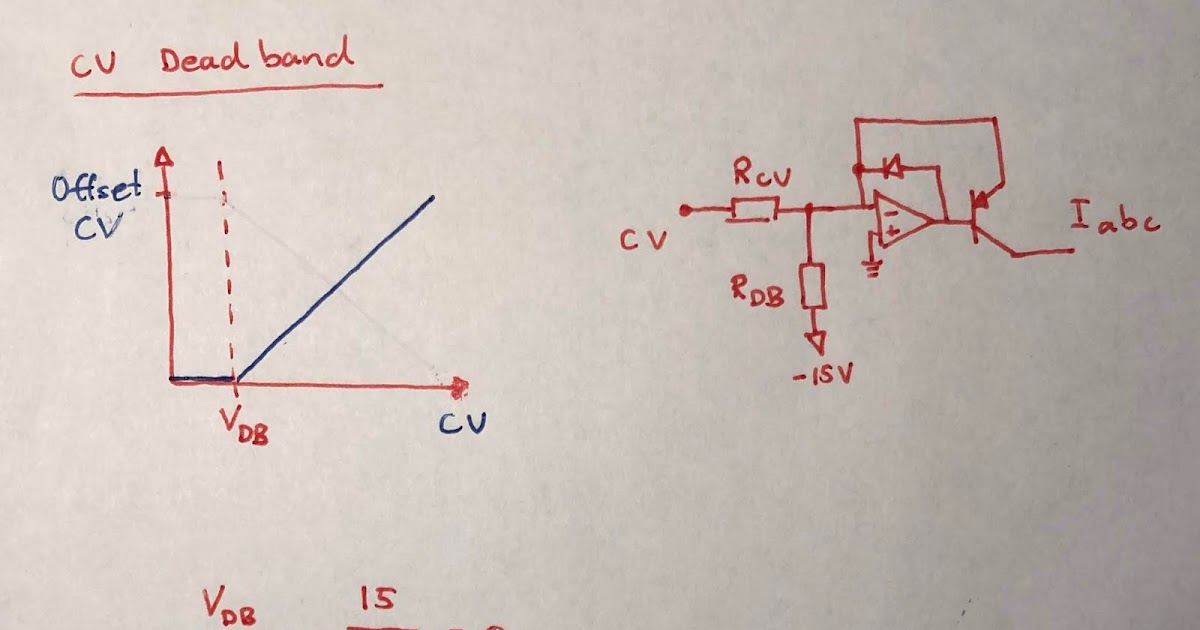 CV Dead band
Offset
CV
V_DB
CV
R_CV
CV
R_DB
-15V
-
+
I_abc
V_DB
15